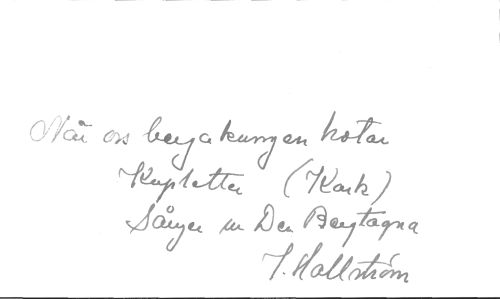 När oss bergakungen hotar
Kupletter (Kark)
Sånger ur Den Bergtagna
I. Hallström